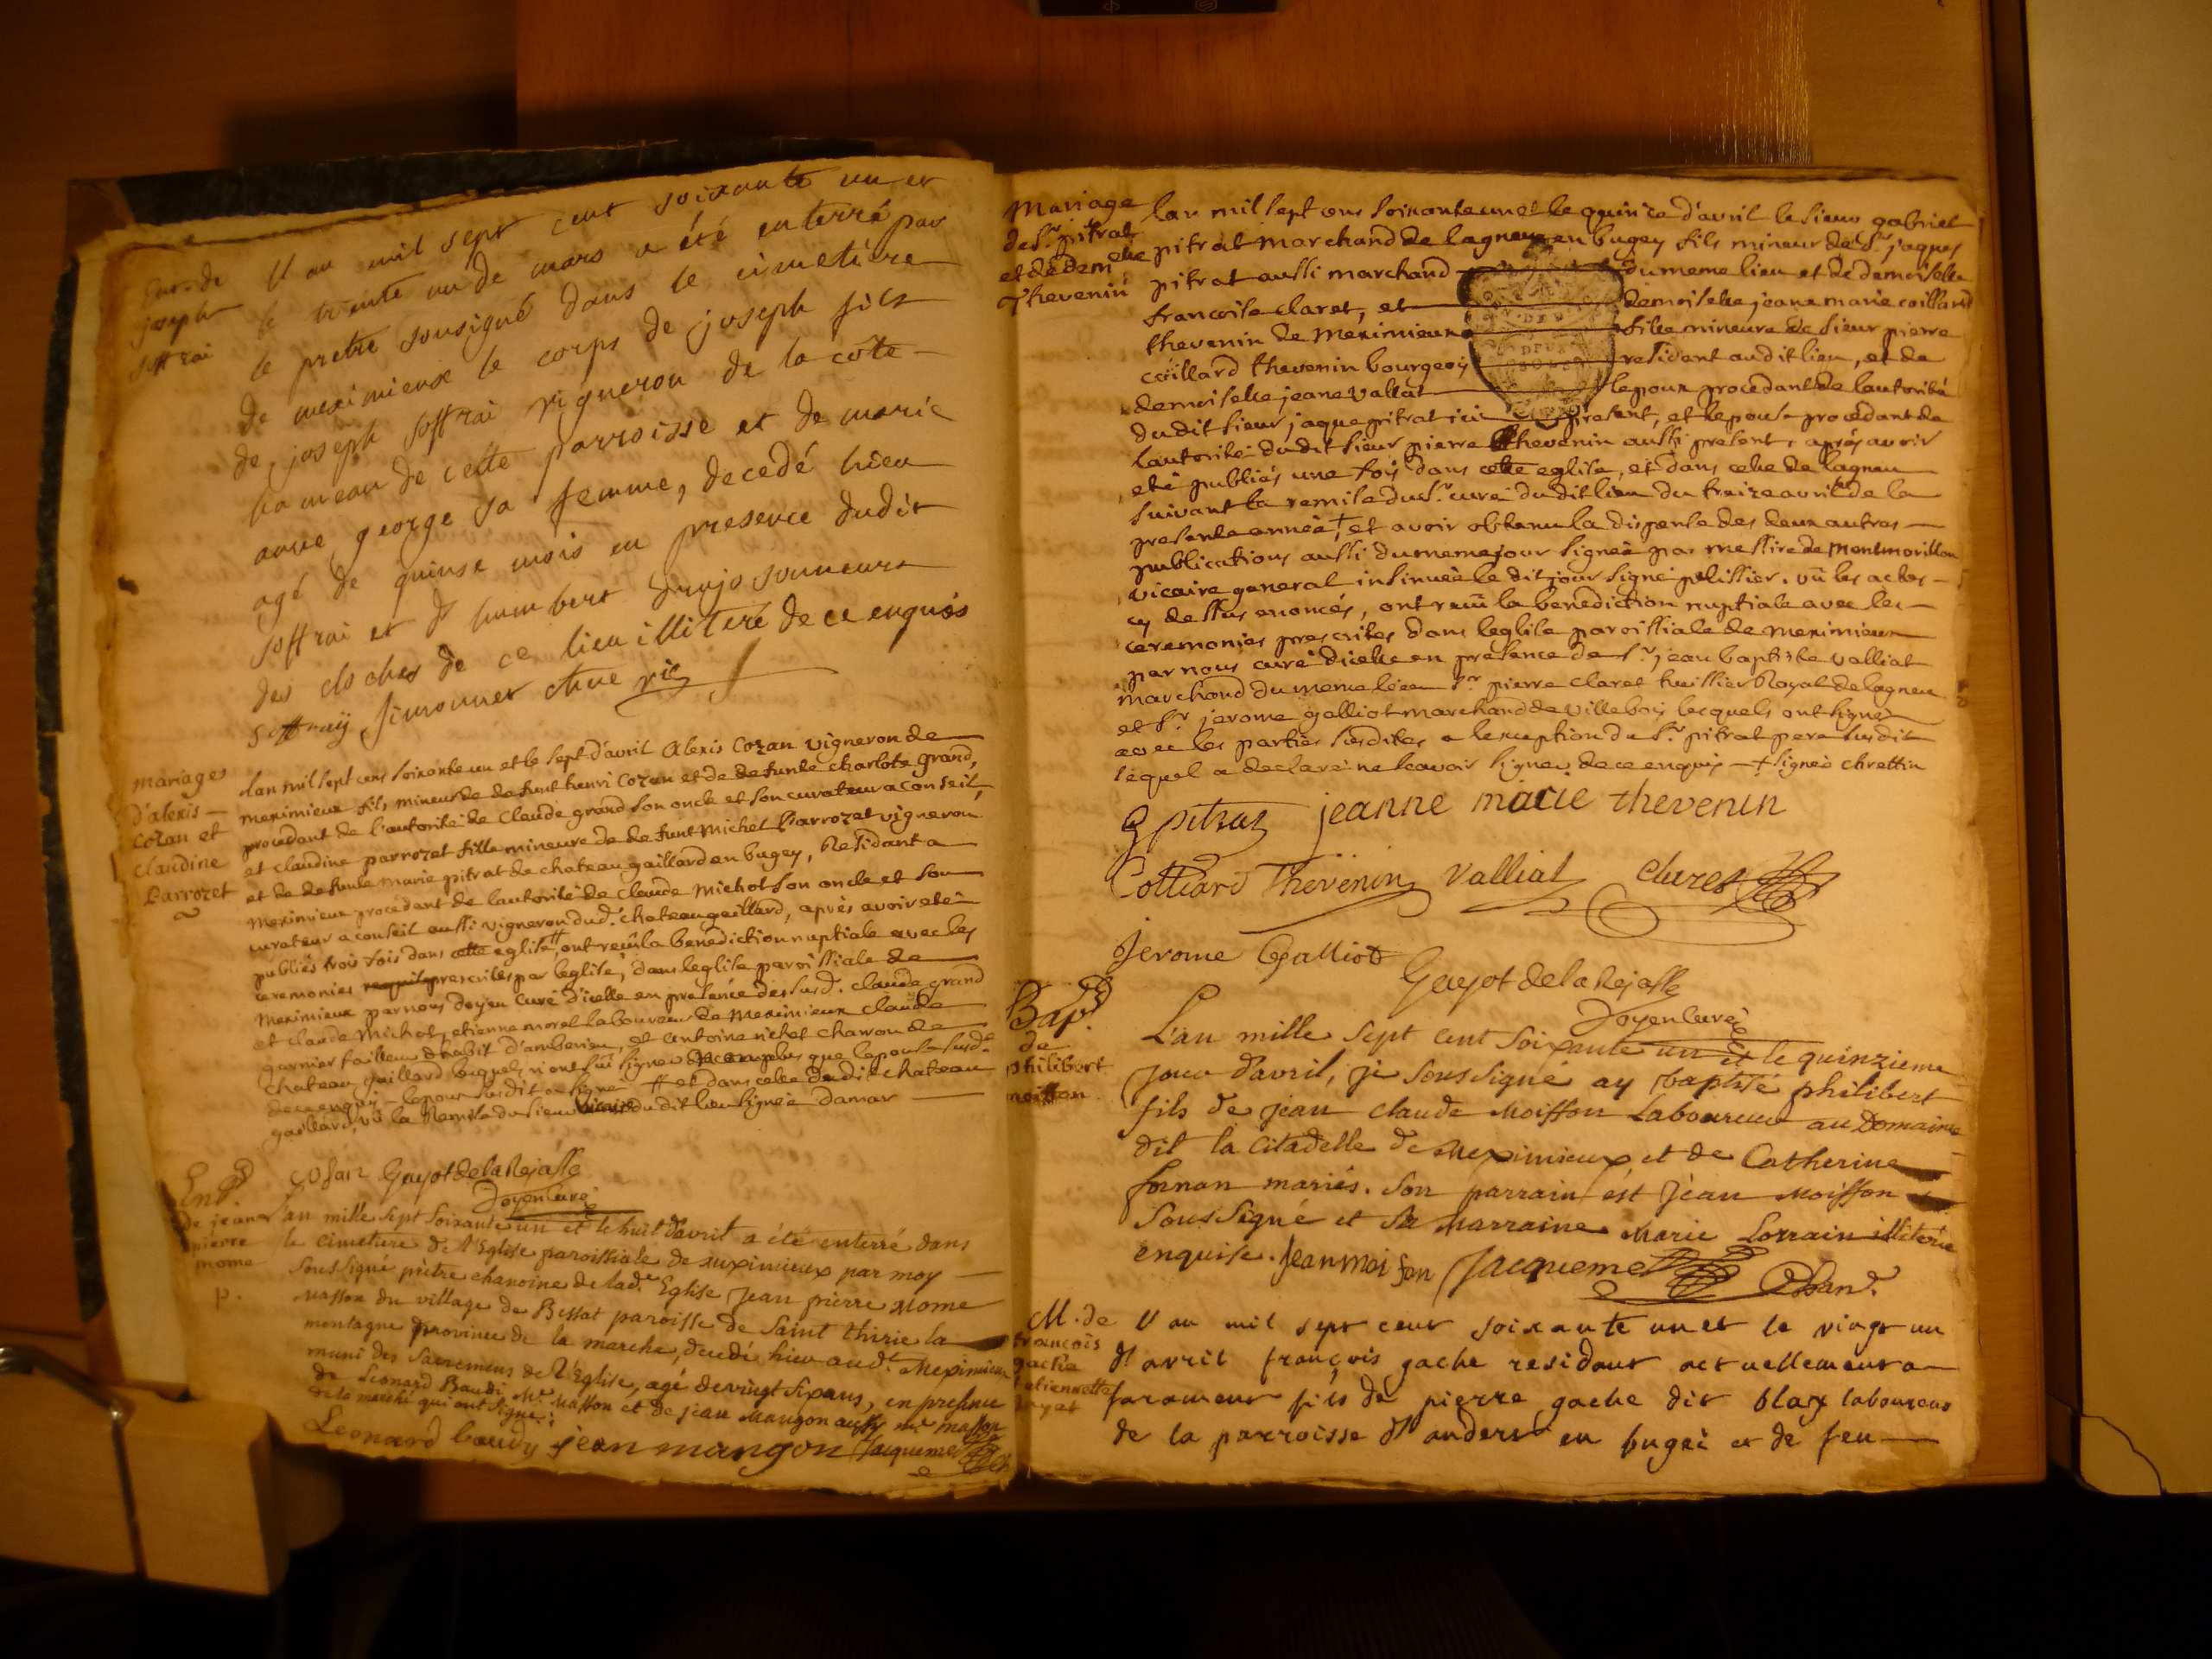 Ent. de
joseph
soffrai
l'an mil sept cent soixante un et
le trente un de mars a été enterré par
le pretre sousigné dans le cimetiere
de meximieux le corps de joseph fils
de joseph soffrai vigneron de la côte
hameau de cette parroisse et de marie
anne george sa femme, decedé hier
agé de quinse mois en presence dudit
soffrai et d'humbert sonneurs
des cloches de ce lieu illiteré de ce enquis
soffray simonnet
mariage
d'alexis
cozan et
claudine
parrozet
lan mil sept cens soixante un et le sept d'avril alexis cozan vigneron de
meximieux fils mineur de defunt henri cozan et de defunte charlote grand,
procedant de l'autorité de claude grand son oncle et son curateur a conseil,
et claudine parrozet fille mineure de defunt michel parrozet vigneron
et de defunte marie pitrat de chateau gaillard en bugey, residant a
meximieux procedant de lautorité de claude michol son oncle et son
curateur a conseil aussi vigneron dud. chateau gaillard, après avoir eté
publiés trois fois dans cette eglise, ont reçu la benediction nuptiale avec les
ceremonies prescrites par leglise, dans leglise paroissiale de
meximieux par nous doyen curé d'icelle en presence des susd. claude grand
et claude michol, etienne morel laboureur de meximieux claude
garnier tailleur d'habit d'amberieu, et antoine richet charron de
chateau gaillard lesquels n'ont sçu signer que lepouse susd.
de ce enquis lepoux susdit a signé et dans celle dudit chateau
gaillard, vû la remise du sieur vicaire dudit lieu signée damar
cosan Guyot de la Rejasse
Doyen curé
Ent.
de jean
pierre
mome
p.
l'an mille sept soixante un et le huit d'avril a été enterré dans
le cimetiere de l'Eglise paroissiale de meximieux par moy
soussigné prètre chanoine de lad. Eglise jean pierre mome
masson du village de Bessat paroisse de saint thirie la
montagne province de la marche, decedé hier aud. meximieux
muni des sacremens de l'Eglise, agé de vingt six ans, en presence
de leonard Baudi me. masson et de jean mangon aussy me. masson
de la marche qui ont signé:
Leonard baudy jean mangon Jacquemet
Mariage
de sr. pitrat
et de demelle
thevenin
lan mil sept cens soixante un et le quinze d'avril le sieur gabriel
pitrat marchand de lagneu en bugey fils mineur de sr. jaques
pitrat aussi marchand du meme lieu et de demoiselle
francoise claret, et demoiselle jeane marie coillard
thevenin de meximieux fille mineure de sieur pierre
coillard thevenin bourgeois residant audit lieu, et de
demoiselle jeane vallat lepoux procedant de lautorité
dudit sieur jaque pitrat ici present, et lepouse procedant de
lautorité dudit sieur pierre thevenin aussi present, après avoir
eté publiés une fois dans cette eglise, et dans celle de lagneu
suivant la remise du sr. curé dudit lieu du treize avril de la
presente année + et avoir obtenu la dispense des deux autres
publications aussi du meme jour signée par messire de montmorillon
vicaire general insinuée le dit jour signé pelissier. vû les actes
cy dessus enoncés, ont reçu la benediction nuptiale avec les
ceremonies prescrites dans leglise paroissiale de meximieux
par nous curé d'icelle en presence de sr. jean baptiste valliat
marchand du meme lieu sr. pierre claret huissier Royal de lagneu
et sr. jerome galliot marchand de villebois lesquels ont signé
avec les parties susdites a lexeption du sr. pitrat pere susdit
lequel a declaré ne scavoir signer de ce enquis + signée chrettin
g pitrat jeanne marie thevenin
Colliard Thevenin valliat Claret
Jerome Galliot
Guyot de la Rejasse
Doyen curé
Bapt.
de
philibert
moisson
L'an mille sept cent soixante un et le quinzieme
jour d'avril, je soussigné ay baptisé philibert
fils de jean claude Moisson Laboureur au Domaine
dit la Citadelle de Meximieux, et de Catherine
fornan mariés. son parrain est jean Moisson
soussigné et sa marraine Marie Lorrain illiterée
enquise. jean moison Jacquemet
M. de
francois
gache
etiennette
l'an mil sept cent soixante un et le vingt un
d'avril françois gache residant actuellement a
faramens fils de pierre gache dit blay laboureur
de la parroisse d'andert en bugei et de feu